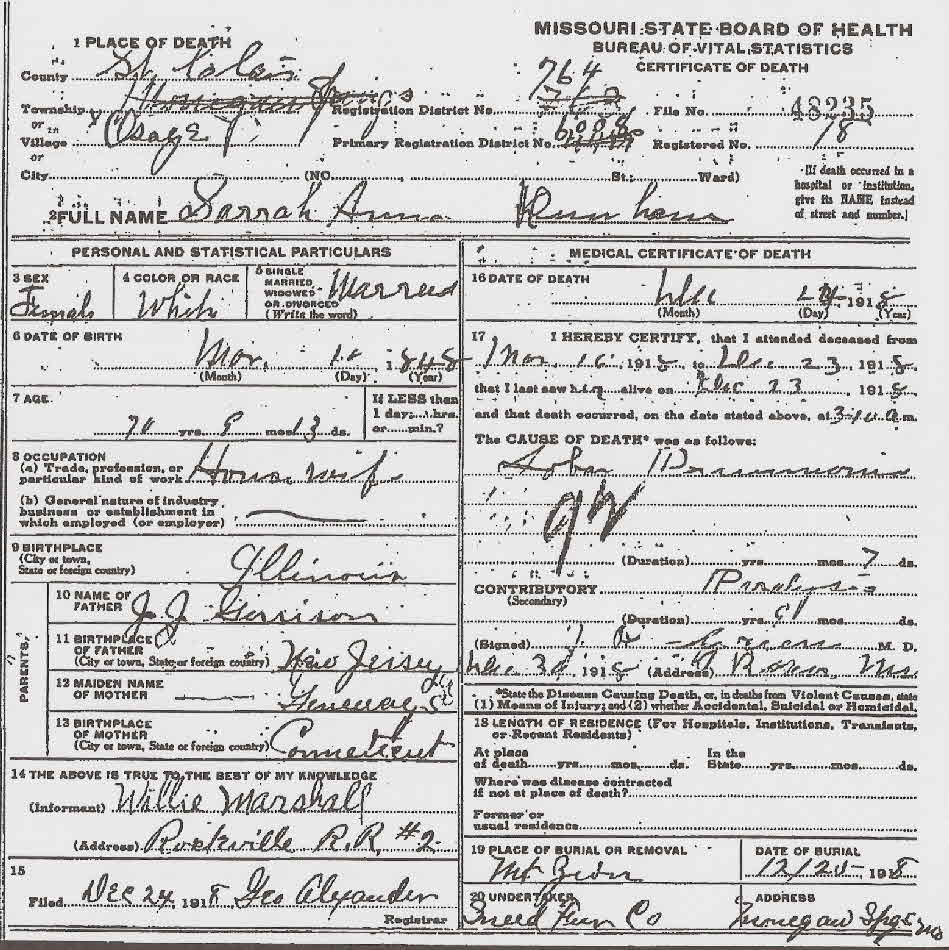 MISSOURI STATE BOARD OF HEALTH
BUREAU OF VITAL STATISTICS
CERTIFICATE OF DEATH
1 PLACE OF DEATH
County St.
Township Registration District No. 764 File No. 48235
or
Village Osage T Primary Registration District No. 6088 Registered No. 78
or
City (NO. St.: Ward)
[If death occurred in a hospital or institution, give its NAME instead of street and number.]
2 FULL NAME Sarrah Anna
PERSONAL AND STATISTICAL PARTICULARS
3 SEX Female
4 COLOR OR RACE White
5 SINGLE MARRIED WIDOWED OR DIVORCED (Write the word) Married
6 DATE OF BIRTH Mar. 10 1848
(Month) (Day) (Year)
7 AGE 70 yrs. 9 mos. 13 ds.
If LESS than 1 day, hrs. or min.?
8 OCCUPATION
(a) Trade, profession, or particular kind of work House wife
(b) General nature of industry business or establishment in which employed (or employer)
9 BIRTHPLACE
(City or town, State or foreign country) Illinois
PARENTS
10 NAME OF FATHER J. J. Gorrison
11 BIRTHPLACE OF FATHER
(City or town, State or foreign country) New Jersey
12 MAIDEN NAME OF MOTHER
13 BIRTHPLACE OF MOTHER
(City or town, State or foreign country) Connecticut
14 THE ABOVE IS TRUE TO THE BEST OF MY KNOWLEDGE
(Informant) Willie Marshall
(Address) Rockville R.R. #2
15
Filed Dec 24 1918 Geo Alexander
Registrar
MEDICAL CERTIFICATE OF DEATH
16 DATE OF DEATH Dec 24 1918
(Month) (Day) (Year)
17 I HEREBY CERTIFY, that I attended deceased from
Nov 16 1918 to Dec 23 1918
that I last saw h alive on Dec 23 1918
and that death occurred, on the date stated above, at 3-10 a m.
The CAUSE OF DEATH* was as follows:
Lobar Pneumonia
92
(Duration) yrs. mos. 7 ds.
CONTRIBUTORY Paralysis
(Secondary)
(Duration) yrs. ds.
(Signed) Green M. D.
Dec 30 1918 (Address) Mo.
*State the Disease Causing Death, or, in deaths from Violent Causes, state
(1) Means of Injury; and (2) whether Accidental, Suicidal or Homicidal.
18 LENGTH OF RESIDENCE (For Hospitals, Institutions, Transients, or Recent Residents)
At place of death yrs. mos. ds. In the State yrs. mos. ds.
Where was disease contracted if not at place of death?
Former or usual residence
19 PLACE OF BURIAL OR REMOVAL Mt Zion
DATE OF BURIAL 12/25 1918
20 UNDERTAKER Sneed Fur Co
ADDRESS Monegaw Spgs Mo